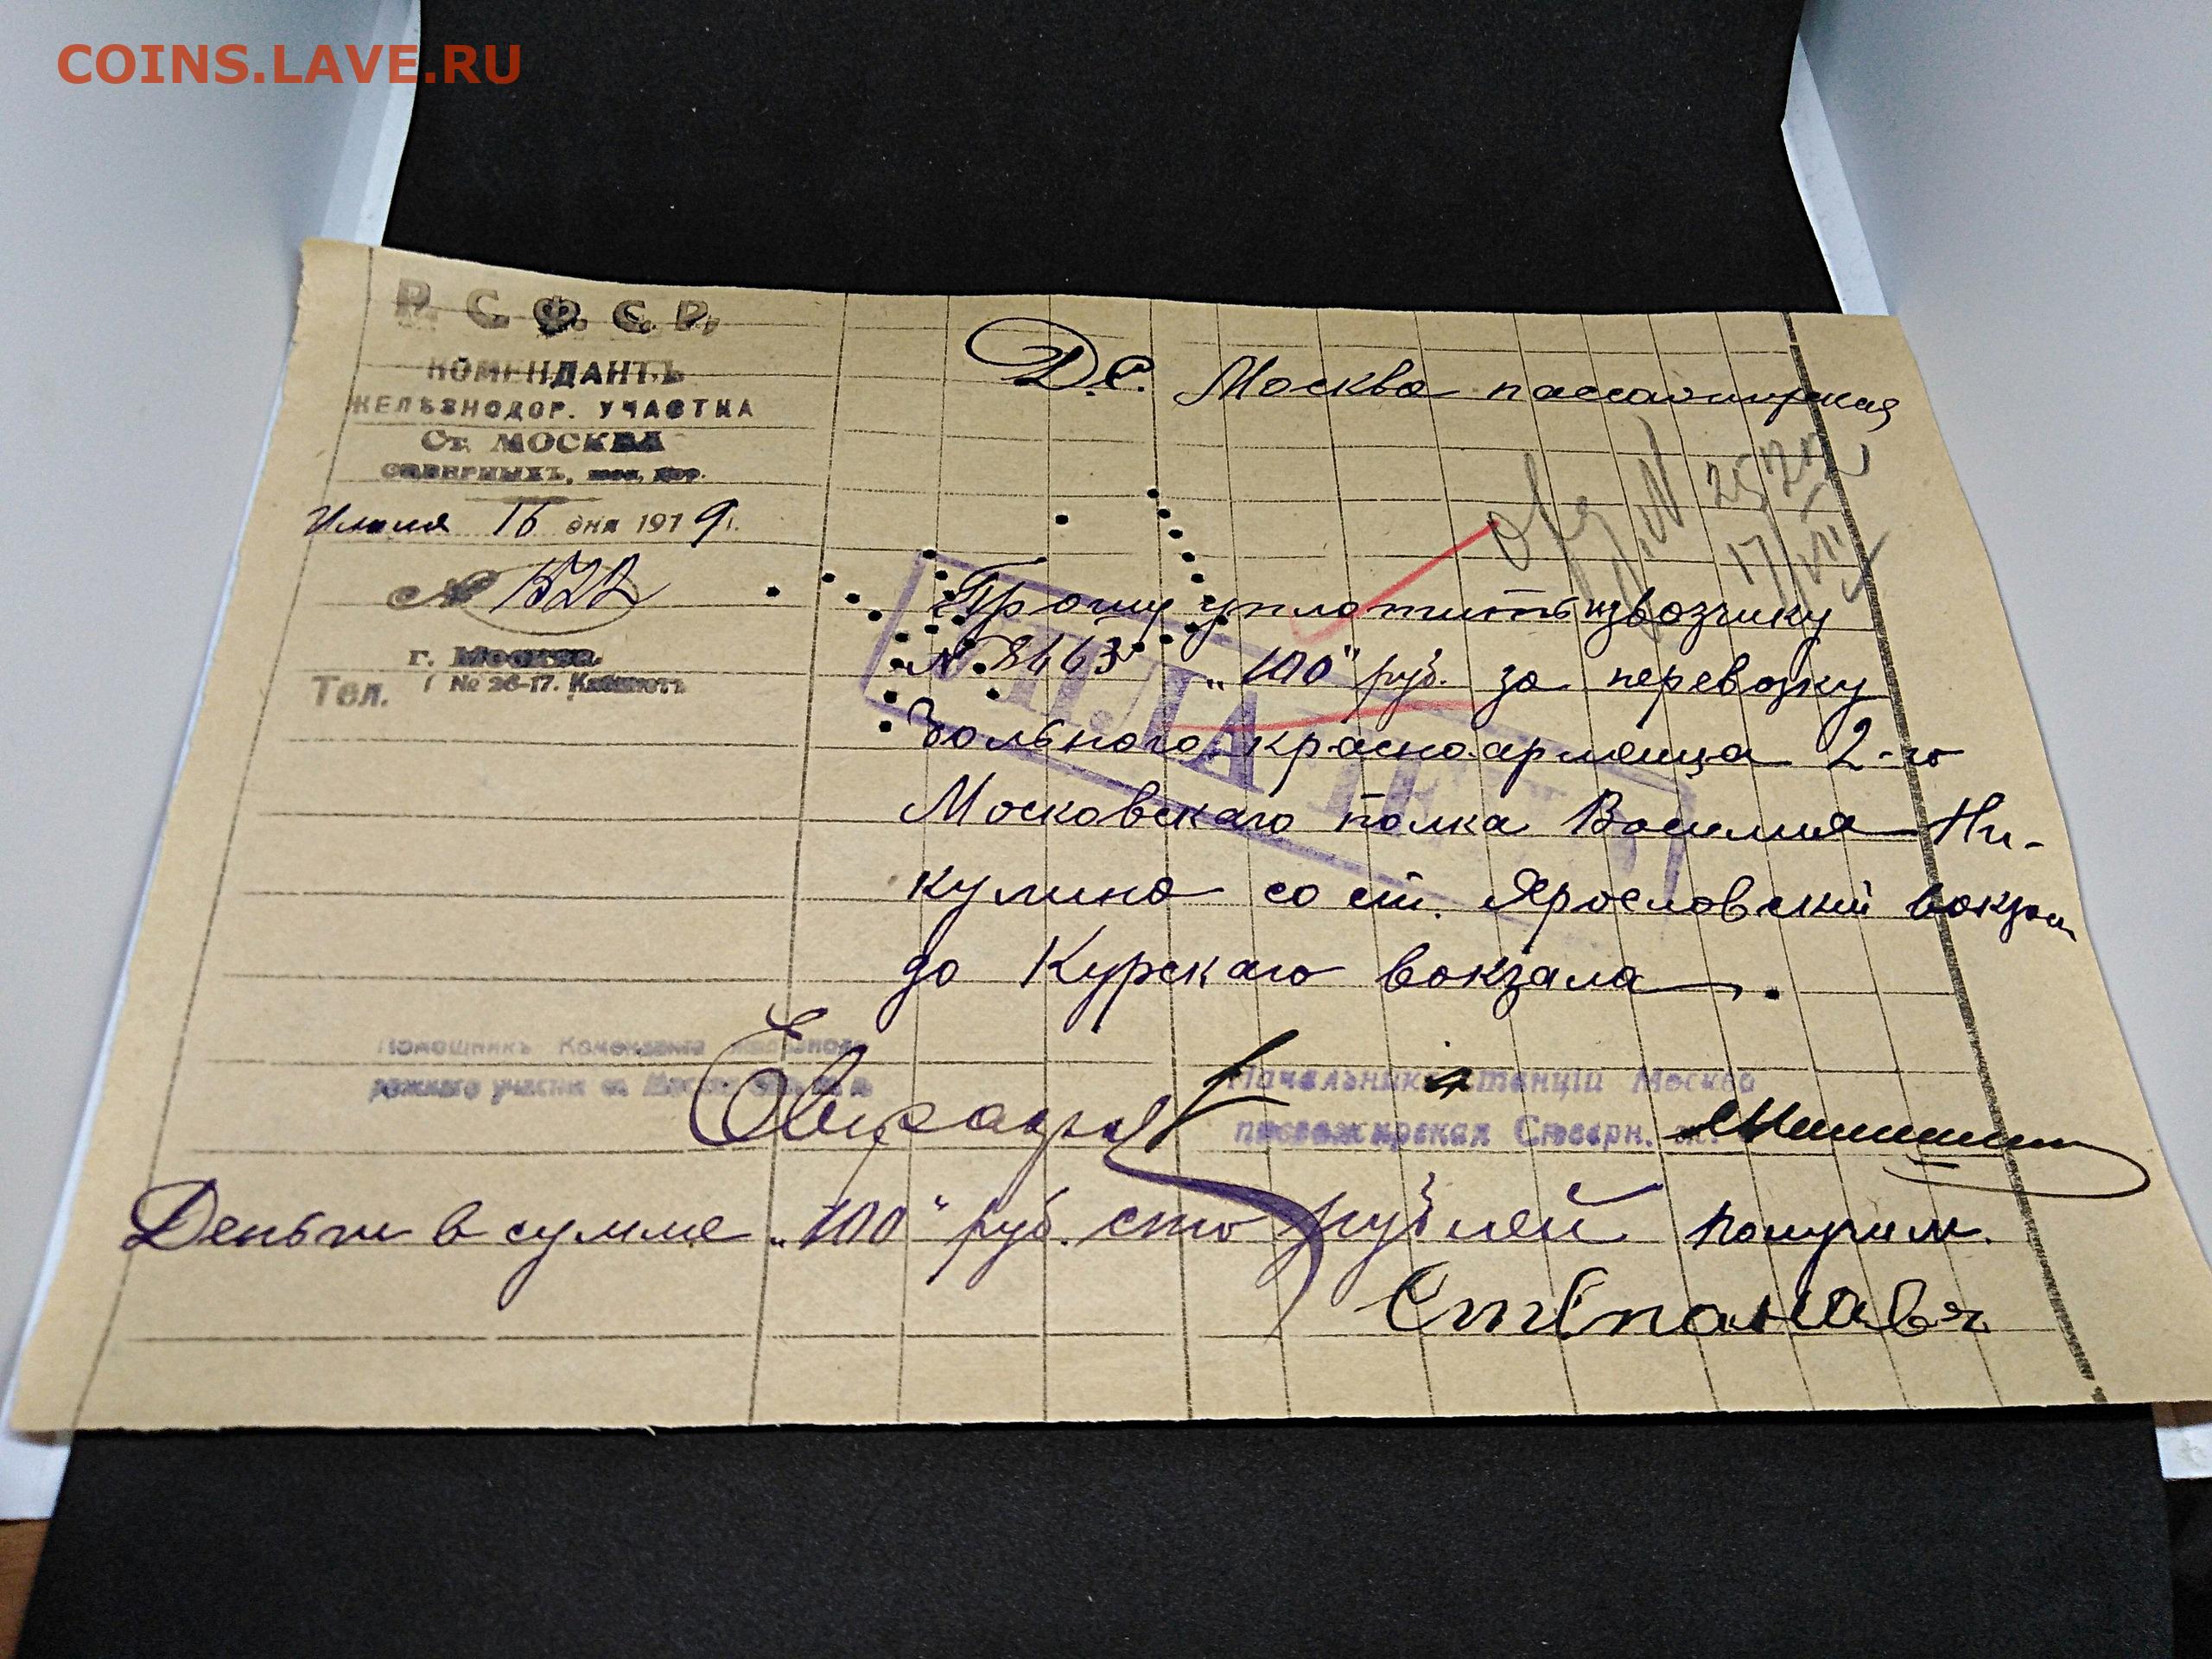 COINS.LAVE.RU
Р. С. Ф. С. Р.
КОМЕНДАНТЪ
ЖЕЛѢЗНОДОР. УЧАСТКА
Ст. МОСКВА
СѢВЕРНЫХЪ, жел. дор.
16 дня 1919г.
№ 1522
г. Москва.
Тел. № 26-17. Кабинетъ
Д.С. Москва пассажирская
№ 2522
17/VII
Прошу уплатить извозчику
№ 8663 „100" руб. за перевозку
больного красноармейца 2-го
Московскаго полка Василия Ни-
кулина со ст. Ярославский вокзал
до Курскаго вокзала.
Помощникъ Коменданта
Начальникъ станціи Москва
пассажирская Сѣверн. ж.
Деньги в сумме „100" руб. сто рублей получил.
Степановъ